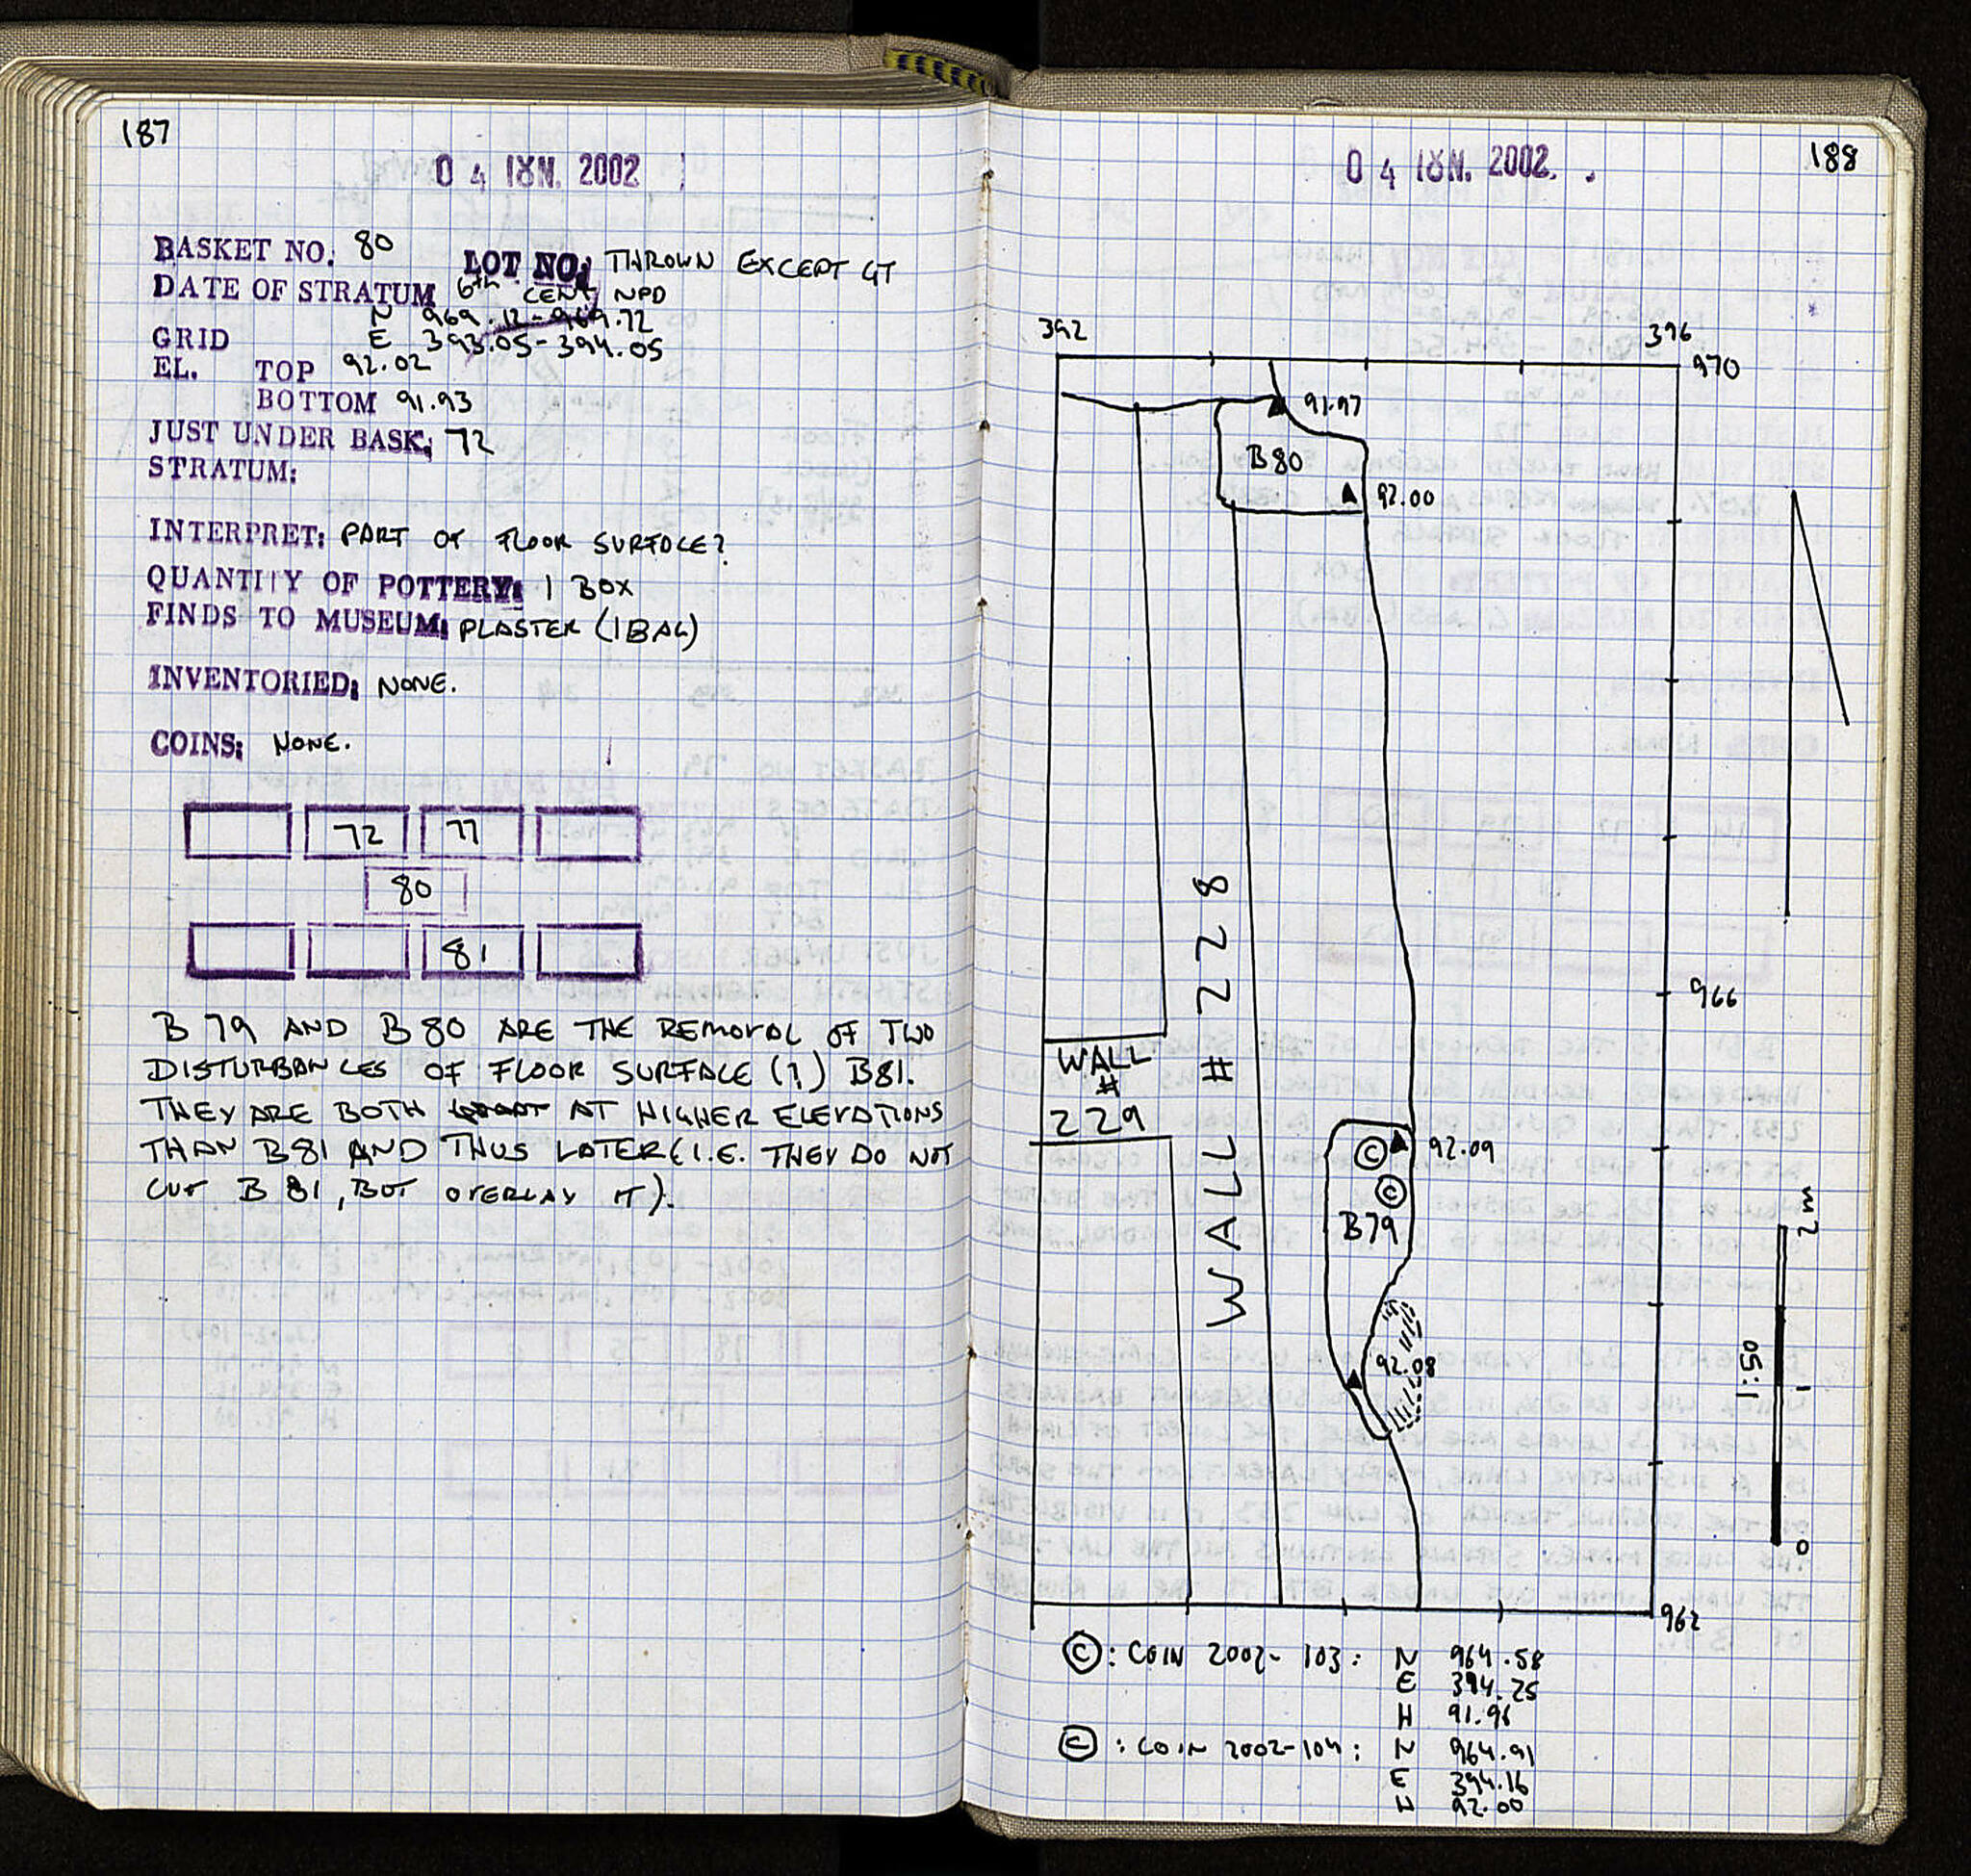 187
04 ΙΟΥΝ. 2002
BASKET NO: 80 LOT NO: THROWN EXCEPT GT
DATE OF STRATUM 6th CENT, NPD
N 969.12-969.72
GRID E 393.05-394.05
EL. TOP 92.02
BOTTOM 91.93
JUST UNDER BASK: 72
STRATUM:
INTERPRET: PART OF FLOOR SURFACE?
QUANTITY OF POTTERY: 1 BOX
FINDS TO MUSEUM: PLASTER (1 BAG)
INVENTORIED: NONE.
COINS: NONE.
72 77
80
81
B 79 AND B 80 ARE THE REMOVAL OF TWO
DISTURBANCES OF FLOOR SURFACE (?) B81.
THEY ARE BOTH AT HIGHER ELEVATIONS
THAN B81 AND THUS LATER (I.E. THEY DO NOT
CUT B 81, BUT OVERLAY IT).
188
04 ΙΟΥΝ. 2002.
392 396
970
91.97
B80
92.00
966
WALL
#
229
WALL # 228
C 92.09
C
B79
92.08
2 m
1
1:50
0
962
C: COIN 2002-103: N 964.58
E 394.25
H 91.96
C: COIN 2002-104: N 964.91
E 394.16
H 92.00